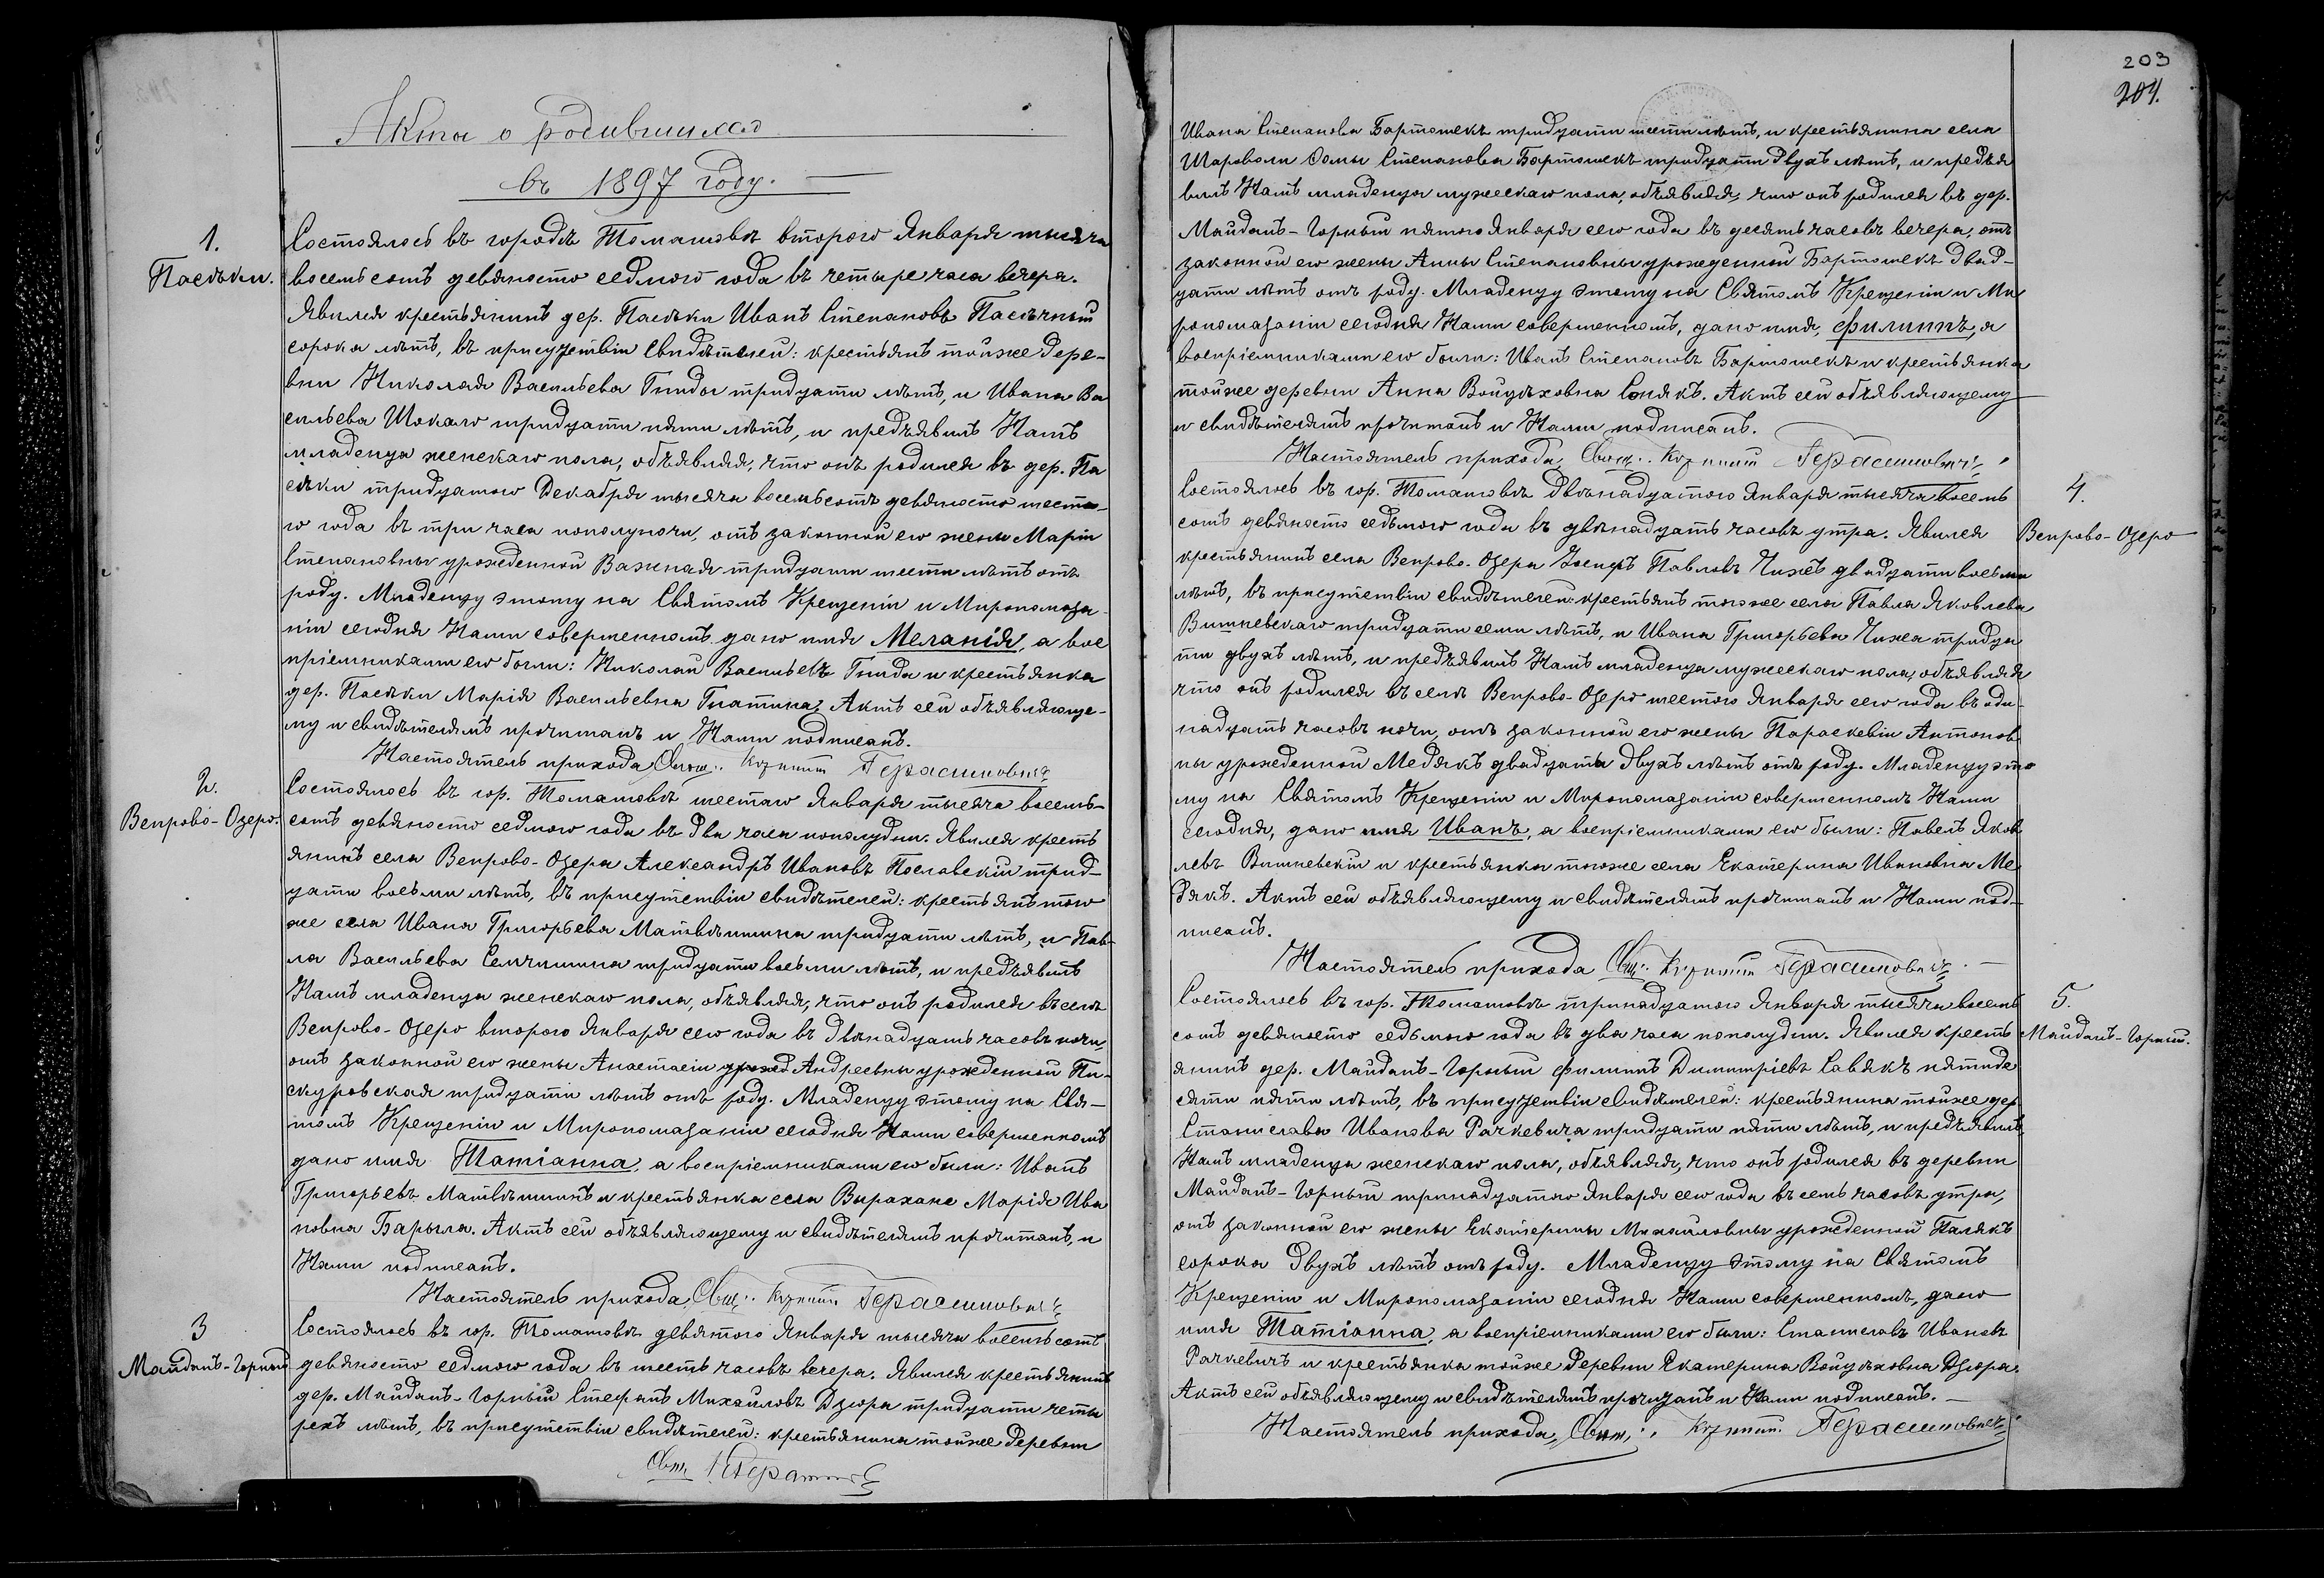 Акта о родившихся
въ 1897 году.
1.
Пасѣки.
Состоялось въ городѣ Томашовѣ второго Января тысяча
восемьсотъ девяносто седмого года въ четыре часа вечера.
Явился крестьянинъ дер. Пасѣки Иванъ Степановъ Пасѣчный
сорока лѣтъ, въ присутствіи свидѣтелей: крестьянъ тойже дере-
вни Николая Васильева Гниды тридцати лѣтъ, и Ивана Ва
сильева Шокало тридцати пяти лѣтъ, и предъявилъ Намъ
младенца женскаго пола, объявляя, что онъ родился въ дер. Па
сѣки тридцатого Декабря тысяча восемьсотъ девяносто шесто-
го года въ три часа пополуночи, отъ законной его жены Маріи
Степановны урожденной Важная тридцати шести лѣтъ отъ
роду. Младенцу этому на Святомъ Крещеніи и Миропомаза-
ніи сегодня Нами совершенномъ дано имя Меланія, а вос
пріемниками его были: Николай Васильевъ Гнида и крестьянка
дер. Пасѣки Марія Васильевна Гнатина. Актъ сей объявляюще-
му и свидѣтелямъ прочитанъ и Нами подписанъ.
Настоятель прихода Свящ. Герасимовичъ
2.
Вепрово-Озеро.
Состоялось въ гор. Томашовѣ шестаго Января тысяча восемь-
сотъ девяносто седмого года въ два часа пополудни. Явился кресть
янинъ села Вепрово-Озера Александръ Ивановъ Пославскій трид-
цати восьми лѣтъ, въ присутствіи свидѣтелей: крестьянъ того
же села Ивана Григорьева Матвѣишина тридцати лѣтъ, и Пав-
ла Васильева Семчишина тридцати восьми лѣтъ, и предъявилъ
Намъ младенца женскаго пола, объявляя, что онъ родился въ селѣ
Вепрово-Озеро второго Января сего года въ двѣнадцать часовъ ночи,
отъ законной его жены Анастасіи Андреевны урожденной Пи-
скуровская тридцати лѣтъ отъ роду. Младенцу этому на Свя-
томъ Крещеніи и Миропомазаніи сегодня Нами совершенномъ
дано имя Татіанна, а воспріемниками его были: Иванъ
Григорьевъ Матвѣишинъ и крестьянка села Выражане Марія Ива
новна Барыла. Актъ сей объявляющему и свидѣтелямъ прочитанъ, и
Нами подписанъ.
Настоятель прихода, Свящ. Герасимовичъ
3
Майданъ-Горный
Состоялось въ гор. Томашовѣ девятого Января тысяча восемьсотъ
девяносто седмого года въ шесть часовъ вечера. Явился крестьянинъ
дер. Майданъ-Горный Стефанъ Михайловъ Дзюра тридцати четы
рехъ лѣтъ, въ присутствіи свидѣтелей: крестьянина тойже деревни
Свящ.
203
204.
Ивана Степанова Бартошекъ тридцати шести лѣтъ, и крестьянина села
Шароволи Ѳомы Степанова Бартошекъ тридцати двухъ лѣтъ, и предъя
вилъ Намъ младенца мужескаго пола, объявляя, что онъ родился въ дер.
Майданъ-Горный пятого Января сего года въ десять часовъ вечера, отъ
законной его жены Анны Степановны урожденной Бартошекъ двад-
цати лѣтъ отъ роду. Младенцу этому на Святомъ Крещеніи и Ми
ропомазаніи сегодня Нами совершенномъ, дано имя, Филиппъ, а
воспріемниками его были: Иванъ Степановъ Бартошекъ и крестьянка
тойже деревни Анна Войцѣховна Сонякъ. Актъ сей объявляющему
и свидѣтелямъ прочитанъ и Нами подписанъ.
Настоятель прихода, Свящ. Герасимовичъ
4.
Вепрово-Озеро
Состоялось въ гор. Томашовѣ двѣнадцатого Января тысяча восемь
сотъ девяносто седьмого года въ двѣнадцать часовъ утра. Явился
крестьянинъ села Вепрово-Озера Іосифъ Павловъ Чижъ двадцати восьми
лѣтъ, въ присутствіи свидѣтелей: крестьянъ тогоже села Павла Яковлева
Вишневскаго тридцати семи лѣтъ, и Ивана Григорьева Чижа тридца
ти двухъ лѣтъ, и предъявилъ Намъ младенца мужескаго пола, объявляя
что онъ родился въ селѣ Вепрово-Озеро шестого Января сего года въ оди-
надцать часовъ ночи, отъ законной его жены Параскевіи Антонов-
ны урожденной Медякъ двадцати двухъ лѣтъ отъ роду. Младенцу это
му на Святомъ Крещеніи и Миропомазаніи совершенномъ Нами
сегодня, дано имя Иванъ, а воспріемниками его были: Павелъ Яков
левъ Вишневскій и крестьянка тогоже села Екатерина Ивановна Ме
дякъ. Актъ сей объявляющему и свидѣтелямъ прочитанъ и Нами под-
писанъ.
Настоятель прихода Свящ. Герасимовичъ
5.
Майданъ-Горный.
Состоялось въ гор. Томашовѣ тринадцатого Января тысяча восемь
сотъ девяносто седьмого года въ два часа пополудни. Явился кресть
янинъ дер. Майданъ-Горный Филиппъ Димитріевъ Савякъ пятиде
сяти пяти лѣтъ, въ присутствіи свидѣтелей: крестьянина тойже дер.
Станислава Иванова Рачкевича тридцати пяти лѣтъ, и предъявилъ
Намъ младенца женскаго пола, объявляя, что онъ родился въ деревни
Майданъ-Горный тринадцатого Января сего года въ семь часовъ утра,
отъ законной его жены Екатерины Михайловны урожденной Палякъ
сорока двухъ лѣтъ отъ роду. Младенцу этому на Святомъ
Крещеніи и Миропомазаніи сегодня Нами совершенномъ, дано
имя Татіанна, а воспріемниками его были: Станиславъ Ивановъ
Рачкевичъ и крестьянка тойже деревни Екатерина Войцѣховна Дзюра.
Актъ сей объявляющему и свидѣтелямъ прочитанъ и Нами подписанъ.
Настоятель прихода, Свящ. Герасимовичъ